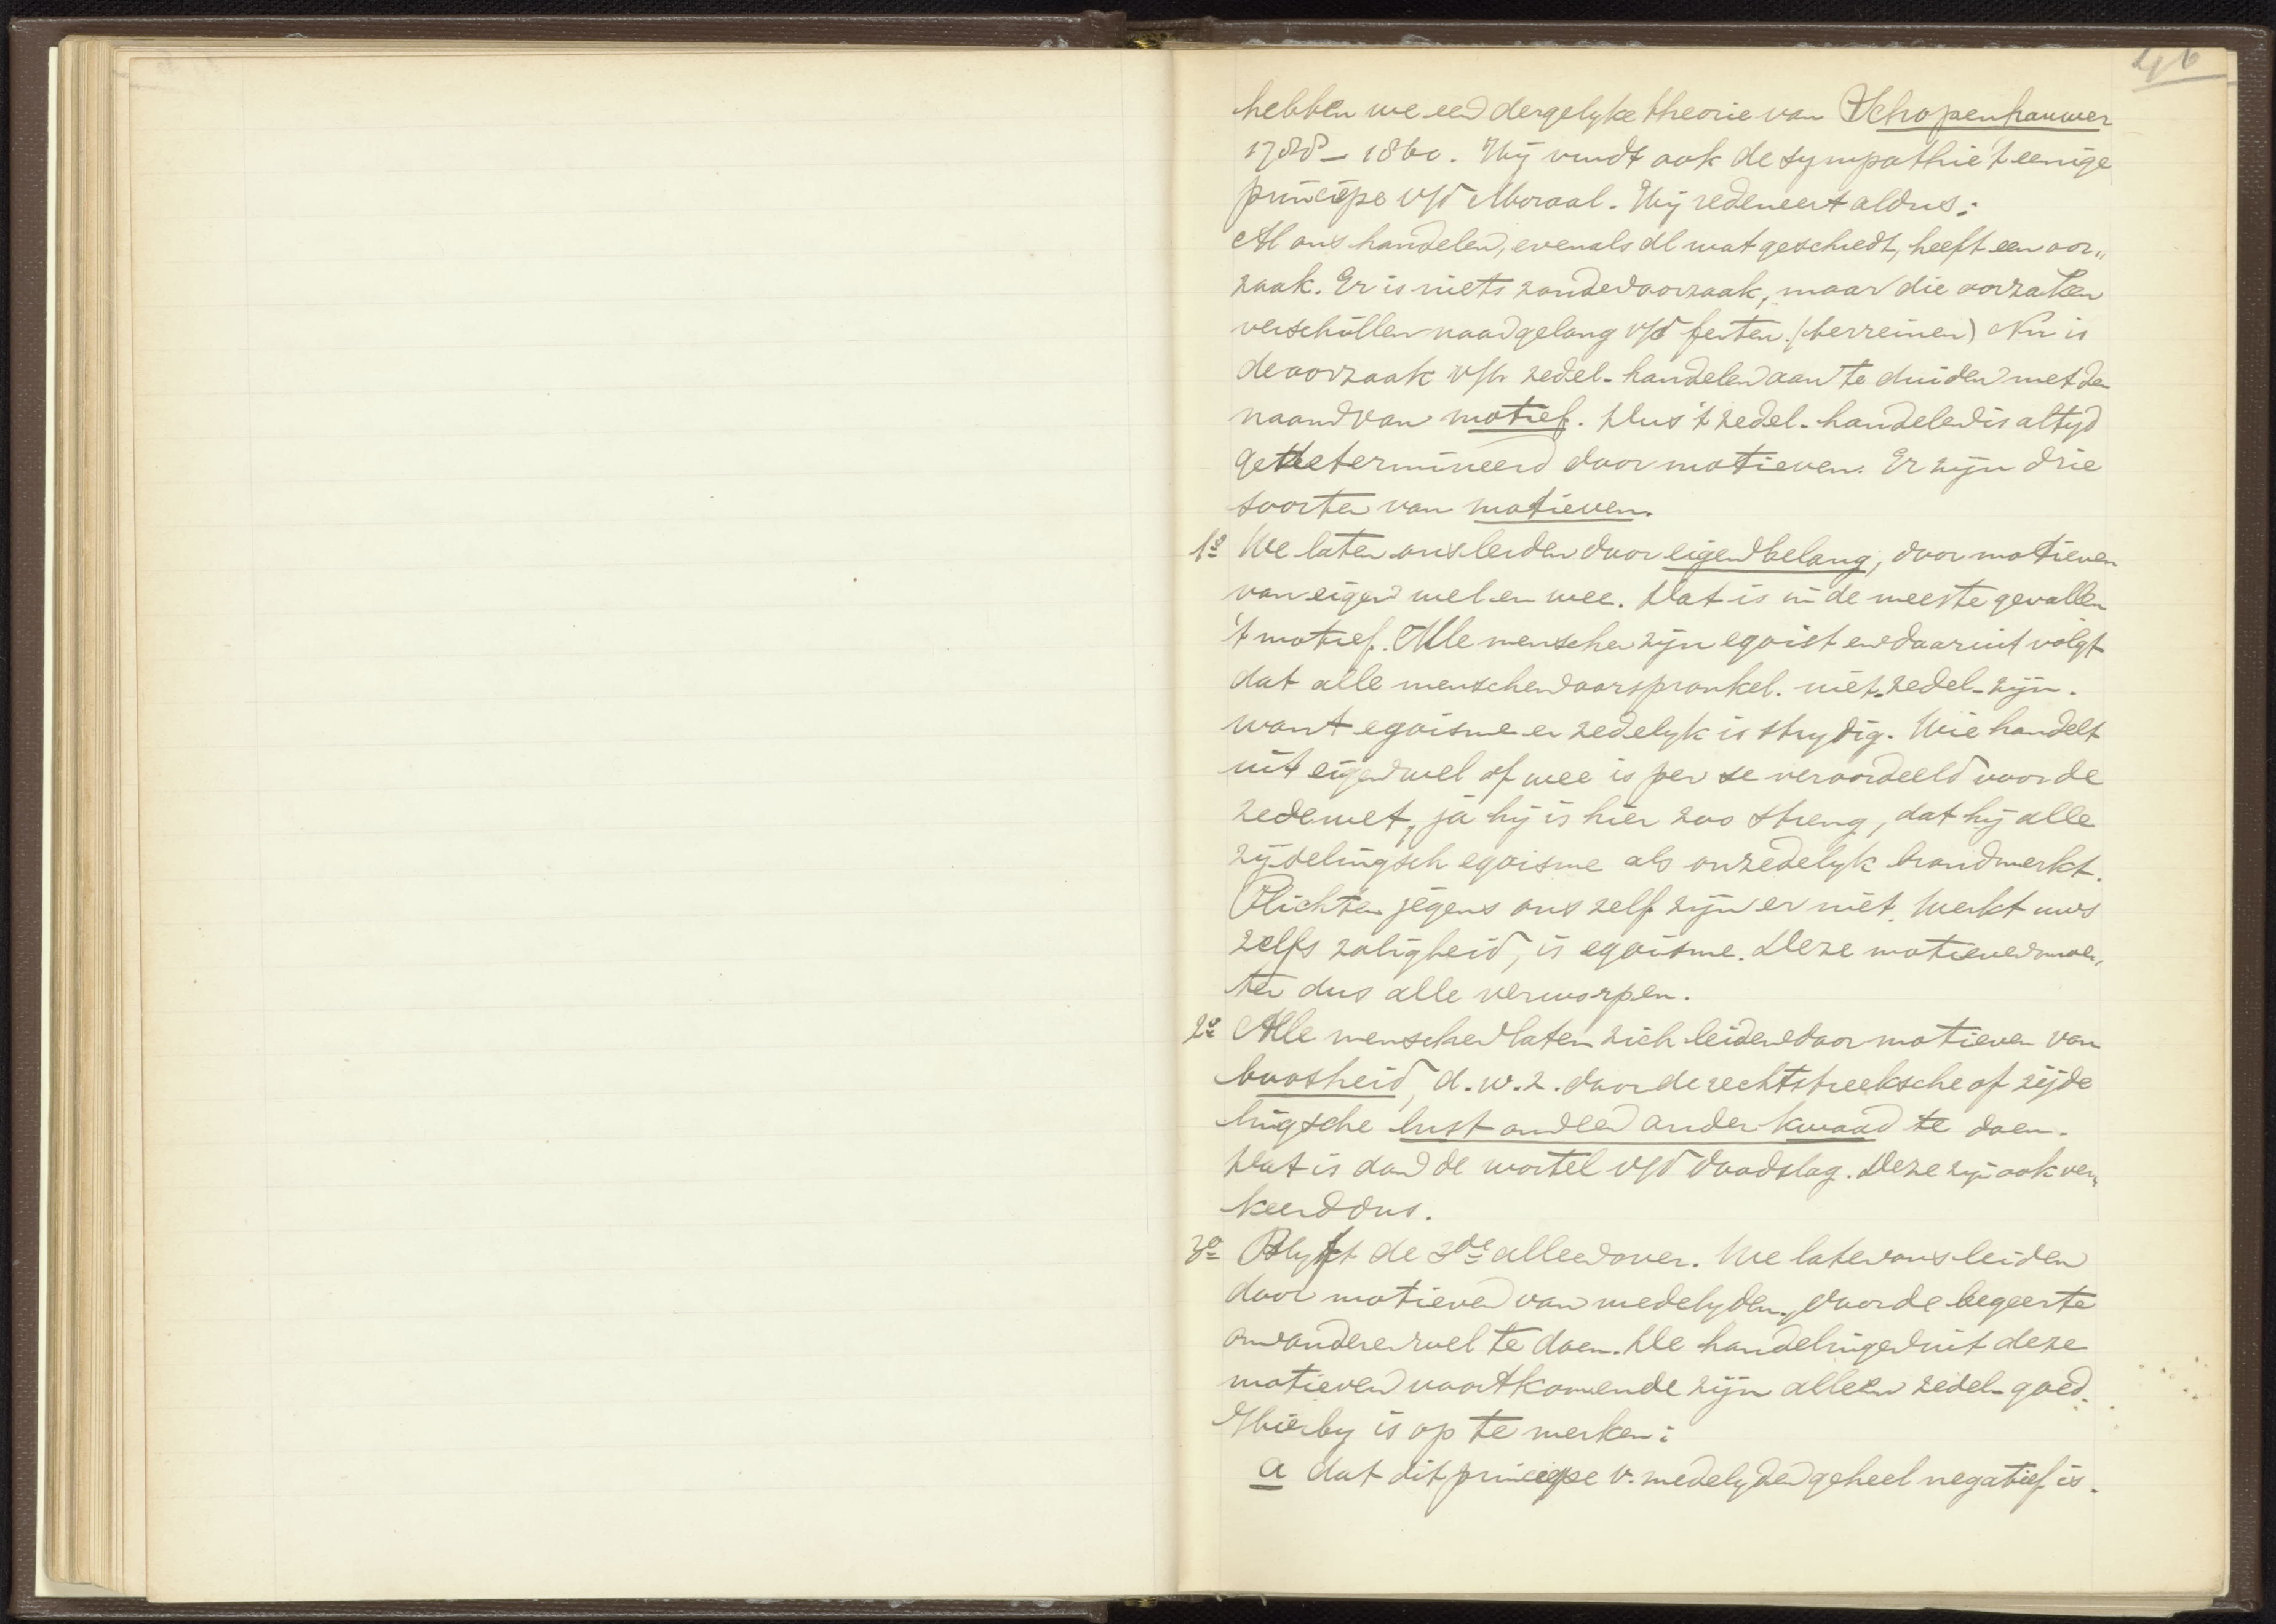 46
hebben we een dergelyke theorie van Schopenhauwer
1788 – 1860. Hij vindt ook de sympathie 't eenige
principe v/d Moraal. Hij redeneert aldus:
Al ons handelen, evenals al wat geschiedt, heeft een oor„
zaak. Er is niets zonder oorzaak, maar die oorzaken
verschillen naar gelang v/d feiten. (terreinen) Nu is
de oorzaak v/h zedel. handelen aan te duiden met den
naam van motief. Dus 't zedel. handelen is altyd
gedetermineerd door motieven. Er zijn drie
soorten van motieven.
1e We laten ons leiden door eigenbelang, door motieven
van eigen wel en wee. Dat is in de meeste gevallen
't motief. Alle menschen zijn egoist en daaruit volgt
dat alle menschen oorspronkel. niet-zedel. zijn.
want egoisme en zedelyk is strydig. Wie handelt
uit eigen wel of wee is per se veroordeeld voor de
zedewet, ja hij is hier zoo streng, dat hij alle
zijdelingsch egoisme als onzedelyk brandmerkt.
Plichten jegens ons zelf zijn er niet. Werkt uws
zelfs zaligheid, is egoisme. Deze motieven moe„
ten dus alle verworpen.
2e Alle menschen laten zich leiden door motieven van
boosheid, d.w.z. door de rechtstreeksche of zijde
lingsche lust om een ander kwaad te doen.
Dat is dan de wortel v/d doodslag. Deze zijn ook ver„
keerd dus.
3e Blyft de 3de alleen over. We laten ons leiden
door motieven van medelyden, door de begeerte
om anderen wel te doen. De handelingen uit deze
motieven voortkomende zijn alleen zedel. goed.
Hierby is op te merken:
a dat dit principe v. medelyden geheel negatief is.